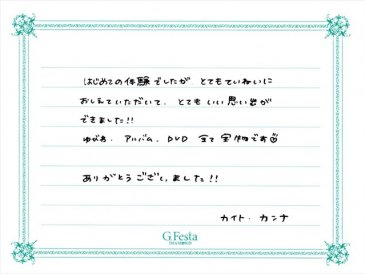 はじめての体験でしたが とてもていねいに
おしえていただいて、とてもいい思い出が
できました!!
ゆびわ、アルバム、DVD 全て宝物です
ありがとうございました!!
カイト・カンナ
G.Festa